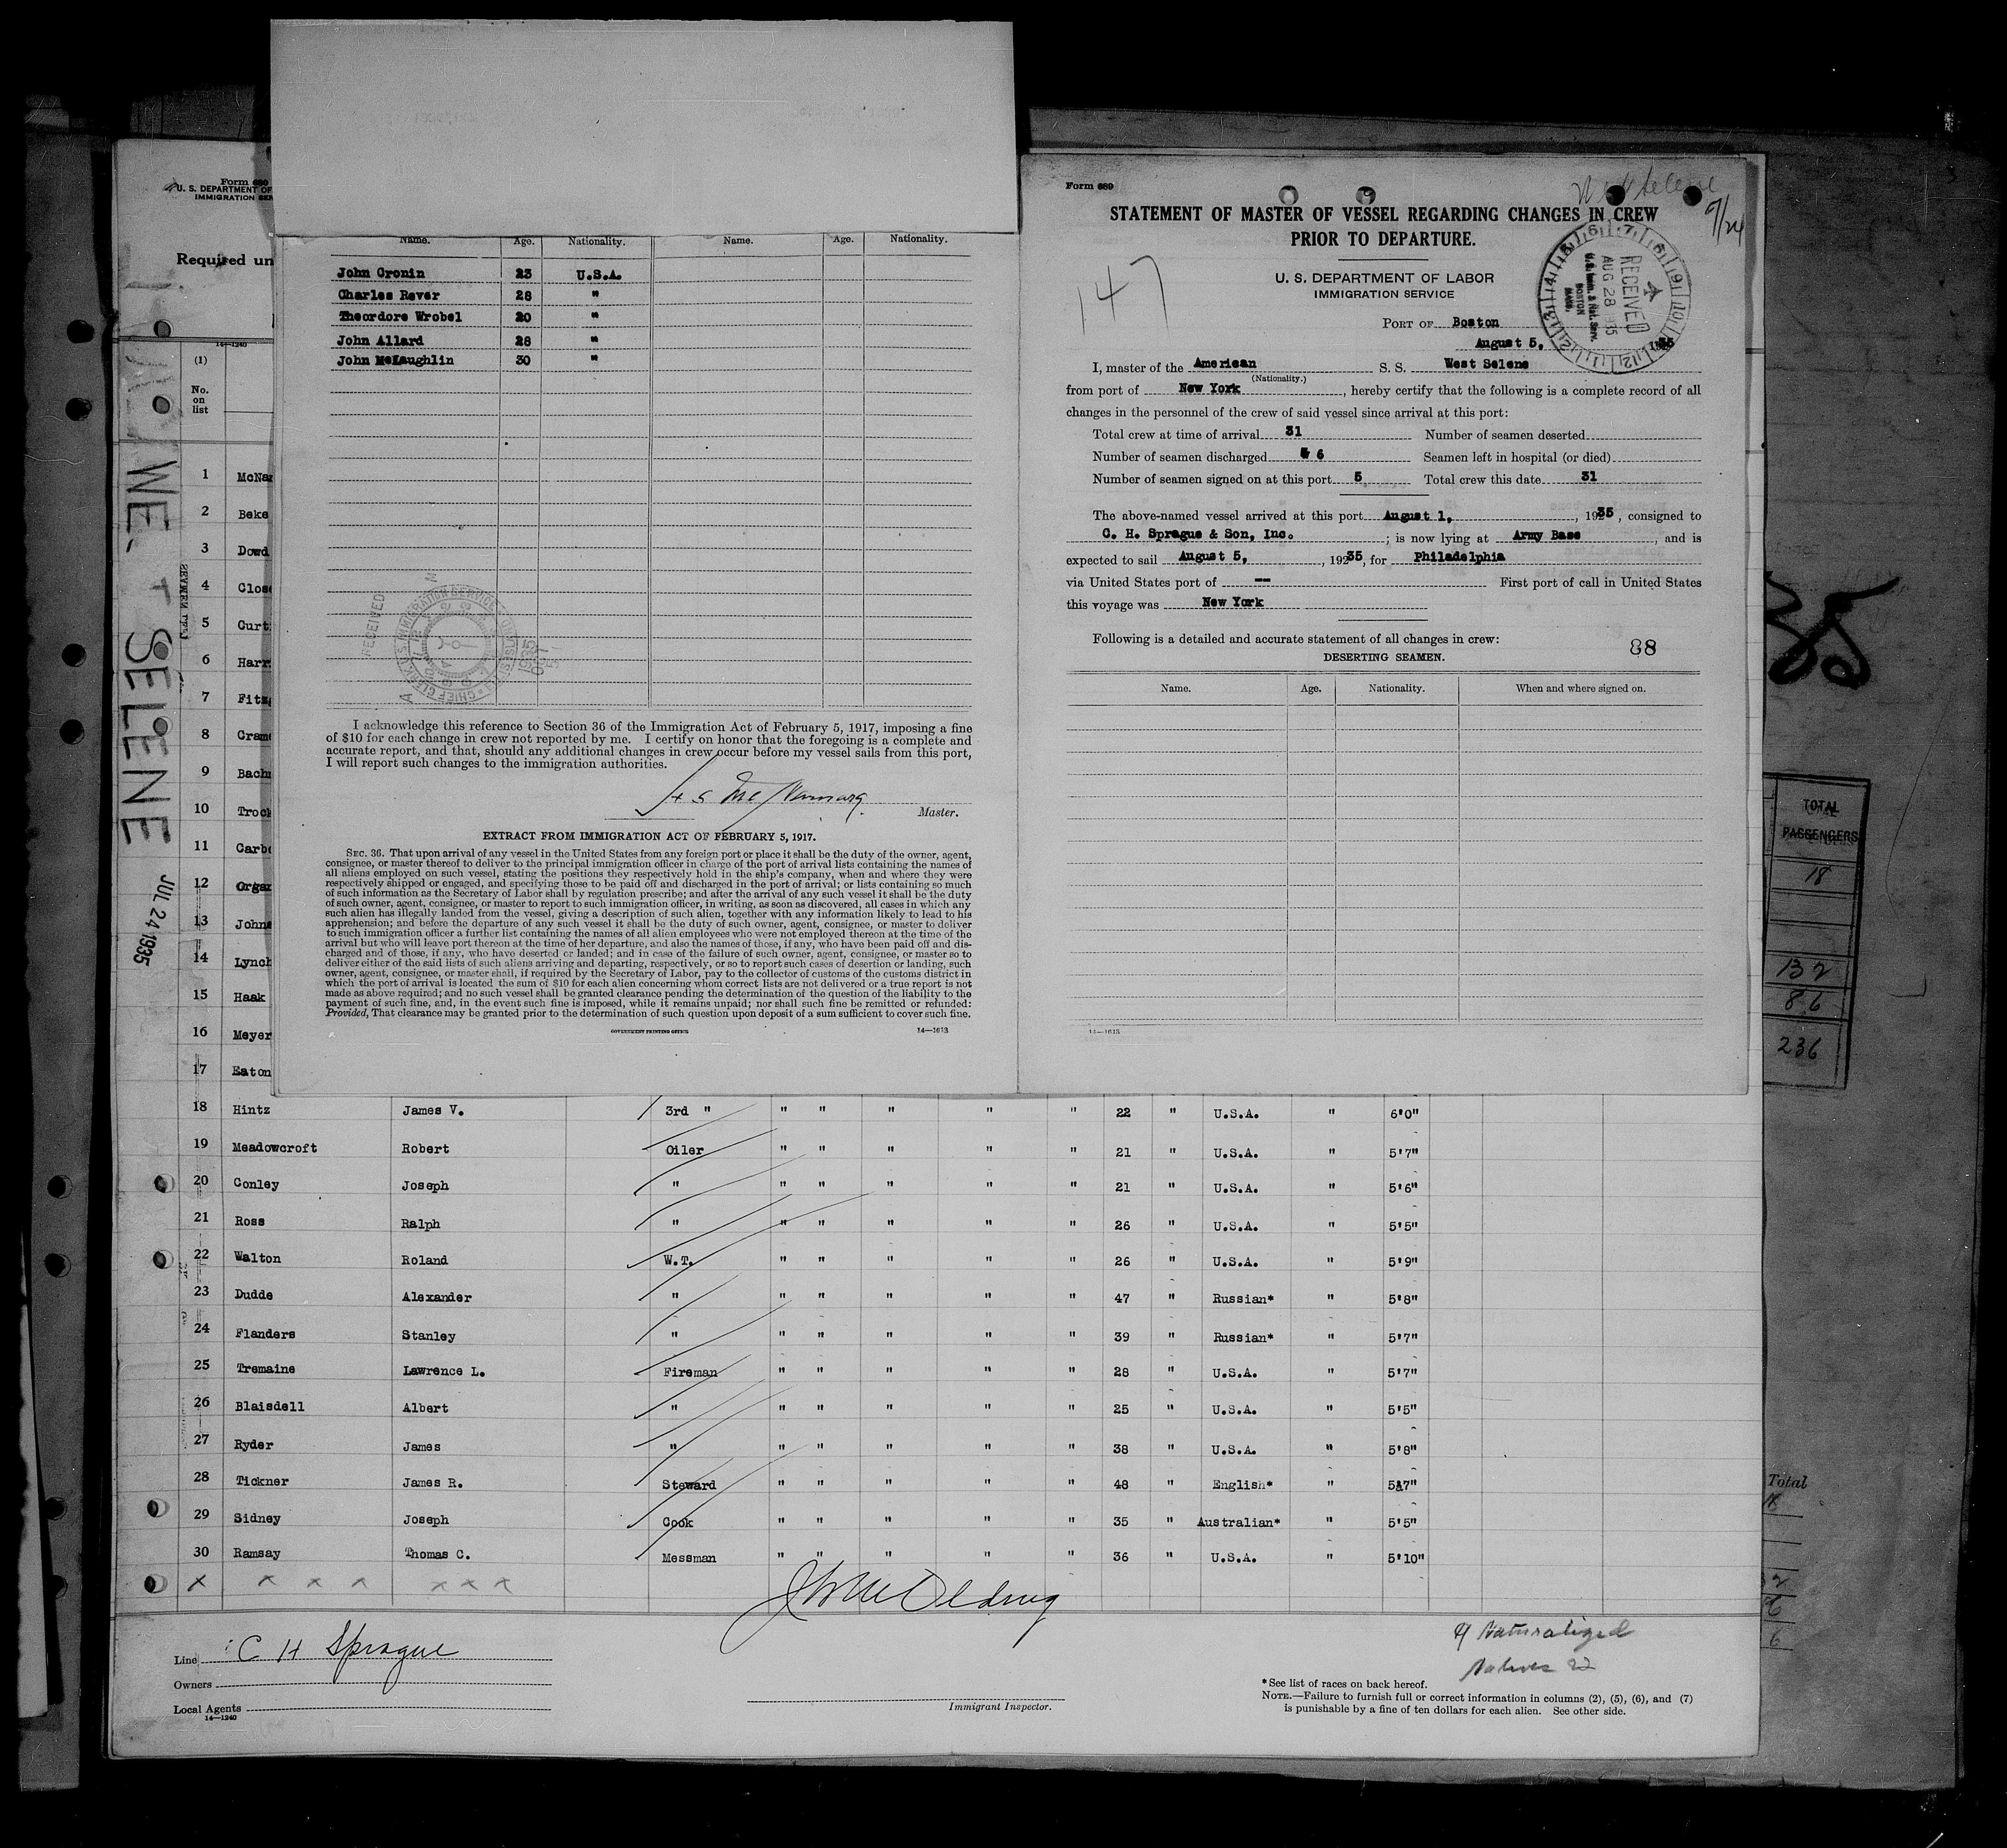 Form 689
U. S. DEPARTMENT OF
IMMIGRATION SER
Required un
14—1240
(1)
No.
on
list
WEST SELENE
JUL 24 1935
1 McNa
2 Beke
3 Dowd
4 Clos
5 Curt
6 Harr
7 Fitz
8 Cram
9 Bach
10 Troc
11 Carb
12 Organ
13 Johns
14 Lynch
15 Haak
16 Meyer
17 Eaton
18 Hintz James V. 3rd " " " " " " 22 " U.S.A. " 6'0"
19 Meadowcroft Robert Oiler " " " " " 21 " U.S.A. " 5'7"
20 Conley Joseph " " " " " " 21 " U.S.A. " 5'6"
21 Ross Ralph " " " " " " 26 " U.S.A. " 5'5"
22 Walton Roland W.T. " " " " " 26 " U.S.A. " 5'9"
23 Dudde Alexander " " " " " " 47 " Russian* " 5'8"
24 Flanders Stanley " " " " " " 39 " Russian* " 5'7"
25 Tremaine Lawrence L. Fireman " " " " " 28 " U.S.A. " 5'7"
26 Blaisdell Albert " " " " " " 25 " U.S.A. " 5'5"
27 Ryder James " " " " " " 38 " U.S.A. " 5'8"
28 Tickner James R. Steward " " " " " 48 " English* " 5'7"
29 Sidney Joseph Cook " " " " " 35 " Australian* " 5'5"
30 Ramsay Thomas C. Messman " " " " " 36 " U.S.A. " 5'10"
x x x x x x x
Line C H Sprague
Owners
Local Agents
14—1240
Immigrant Inspector.
Naturalized
Natives 22
*See list of races on back hereof.
NOTE.—Failure to furnish full or correct information in columns (2), (5), (6), and (7)
is punishable by a fine of ten dollars for each alien. See other side.
Name. Age. Nationality. Name. Age. Nationality.
John Cronin 23 U.S.A.
Charles Rever 28 "
Theordore Wrobel 20 "
John Allard 28 "
John McLaughlin 30 "
RECEIVED
I acknowledge this reference to Section 36 of the Immigration Act of February 5, 1917, imposing a fine
of $10 for each change in crew not reported by me. I certify on honor that the foregoing is a complete and
accurate report, and that, should any additional changes in crew occur before my vessel sails from this port,
I will report such changes to the immigration authorities.
Master.
EXTRACT FROM IMMIGRATION ACT OF FEBRUARY 5, 1917.
SEC. 36. That upon arrival of any vessel in the United States from any foreign port or place it shall be the duty of the owner, agent,
consignee, or master thereof to deliver to the principal immigration officer in charge of the port of arrival lists containing the names of
all aliens employed on such vessel, stating the positions they respectively hold in the ship's company, when and where they were
respectively shipped or engaged, and specifying those to be paid off and discharged in the port of arrival; or lists containing so much
of such information as the Secretary of Labor shall by regulation prescribe; and after the arrival of any such vessel it shall be the duty
of such owner, agent, consignee, or master to report to such immigration officer, in writing, as soon as discovered, all cases in which any
such alien has illegally landed from the vessel, giving a description of such alien, together with any information likely to lead to his
apprehension; and before the departure of any such vessel it shall be the duty of such owner, agent, consignee, or master to deliver
to such immigration officer a further list containing the names of all alien employees who were not employed thereon at the time of the
arrival but who will leave port thereon at the time of her departure, and also the names of those, if any, who have been paid off and dis-
charged and of those, if any, who have deserted or landed; and in case of the failure of such owner, agent, consignee, or master so to
deliver either of the said lists of such aliens arriving and departing, respectively, or so to report such cases of desertion or landing, such
owner, agent, consignee, or master shall, if required by the Secretary of Labor, pay to the collector of customs of the customs district in
which the port of arrival is located the sum of $10 for each alien concerning whom correct lists are not delivered or a true report is not
made as above required; and no such vessel shall be granted clearance pending the determination of the question of the liability to the
payment of such fine, and, in the event such fine is imposed, while it remains unpaid; nor shall such fine be remitted or refunded:
Provided, That clearance may be granted prior to the determination of such question upon deposit of a sum sufficient to cover such fine.
GOVERNMENT PRINTING OFFICE 14—1613
Form 689
W Selene
9/24
STATEMENT OF MASTER OF VESSEL REGARDING CHANGES IN CREW
PRIOR TO DEPARTURE.
147
U. S. DEPARTMENT OF LABOR
IMMIGRATION SERVICE
RECEIVED
AUG 28 1935
U.S. Imm. & Nat. Serv.
BOSTON
MASS.
PORT OF Boston
August 5, 1935
I, master of the American S. S. West Selene
(Nationality.)
from port of New York, hereby certify that the following is a complete record of all
changes in the personnel of the crew of said vessel since arrival at this port:
Total crew at time of arrival 31 Number of seamen deserted
Number of seamen discharged 6 Seamen left in hospital (or died)
Number of seamen signed on at this port 5 Total crew this date 31
The above-named vessel arrived at this port August 1, , 1935, consigned to
C. H. Sprague & Son, Inc. ; is now lying at Army Base, and is
expected to sail August 5, , 19235, for Philadelphia
via United States port of -- First port of call in United States
this voyage was New York
Following is a detailed and accurate statement of all changes in crew: 88
DESERTING SEAMEN.
Name. Age. Nationality. When and where signed on.
14—1613
TOTAL
PASSENGERS
18
132
86
236
Total